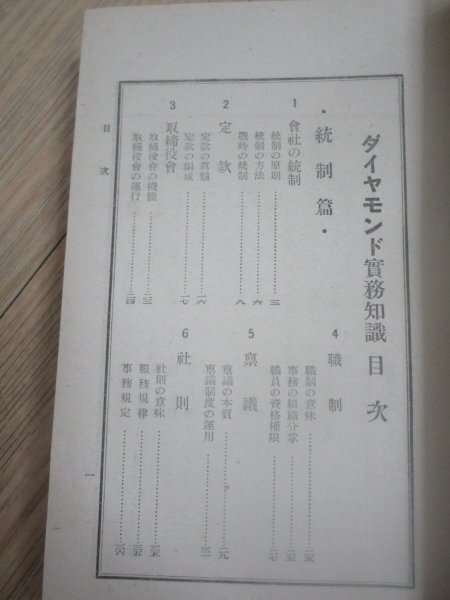 ダイヤモンド實務知識 目次
・統制篇・
1 會社の統制
統制の原則 三
統制の方法 六
戰時の統制 八
2 定款
定款の眞髓 一六
定款の編成 一七
3 取締役會
取締役會の機能
取締役會の運行
4 職制
職制の意味
事務の組織分掌
職員の資格權限
5 禀議
禀議の本質
禀議制度の運用
6 社則
社則の意味
服務規律
事務規定
目次
一